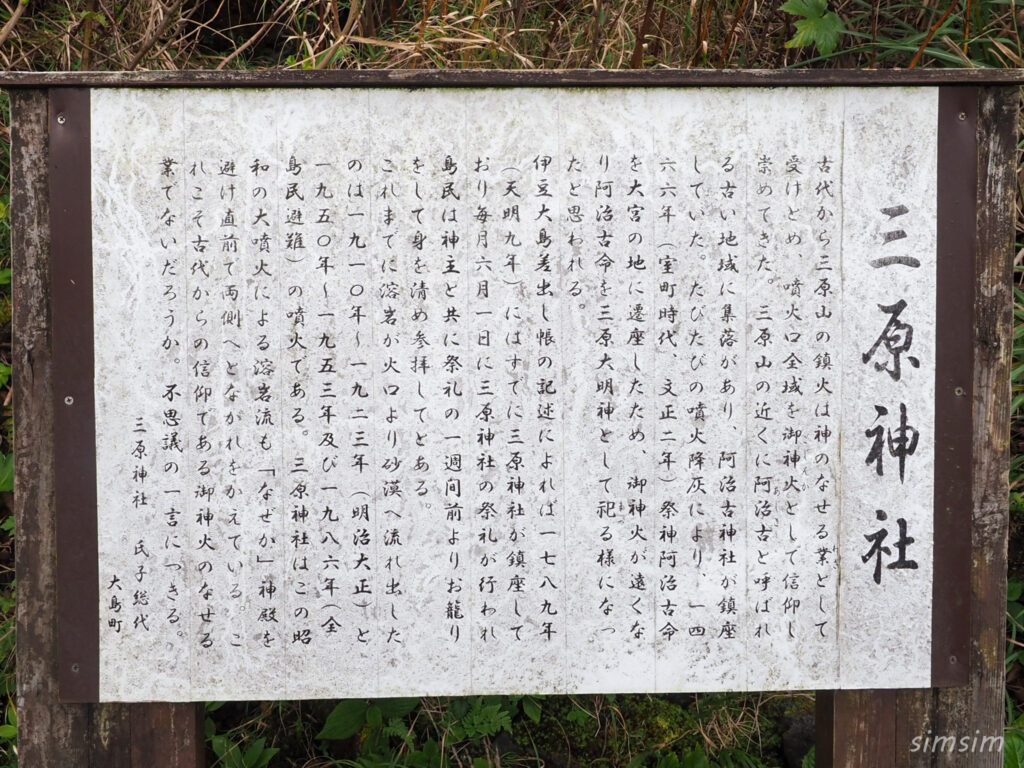 三原神社
古代から三原山の鎮火は神のなせる業として
受けとめ、噴火口全域を御神火として信仰し
崇めてきた。三原山の近くに阿治古と呼ばれ
る古い地域に集落があり、阿治古神社が鎮座
していた。たびたびの噴火降灰により、一四
六六年（室町時代、文正二年）祭神阿治古命
を大宮の地に遷座したため、御神火が遠くな
り阿治古命を三原大明神として祀る様になっ
たと思われる。
伊豆大島差出し帳の記述によれば一七八九年
（天明九年）にはすでに三原神社が鎮座して
おり毎月六月一日に三原神社の祭礼が行われ
島民は神主と共に祭礼の一週間前よりお籠り
をして身を清め参拝してとある。
これまでに溶岩が火口より砂漠へ流れ出した
のは一九一〇年～一九二三年（明治大正）と
一九五〇年～一九五三年及び一九八六年（全
島民避難）の噴火である。三原神社はこの昭
和の大噴火による溶岩流も「なぜか」神殿を
避け直前で両側へとながれをかえている。こ
れこそ古代からの信仰である御神火のなせる
業でないだろうか。不思議の一言につきる。
三原神社　氏子総代
大島町
simsim